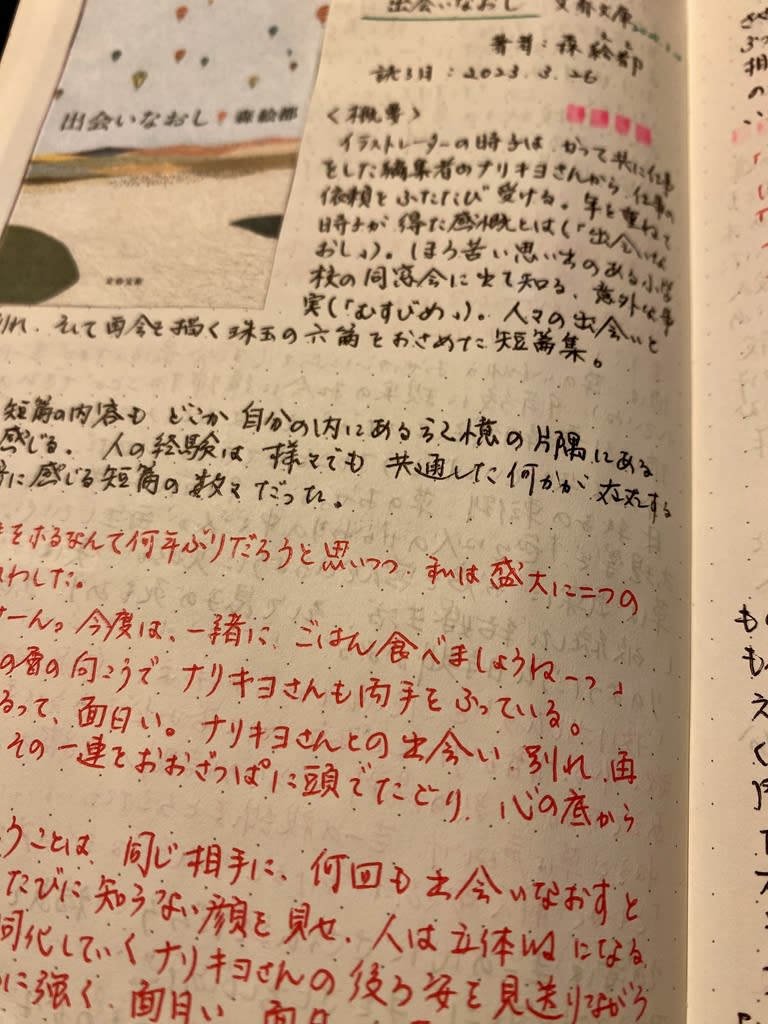 出会いなおし 文春文庫
著者:森絵都
読了日:2023.3.26
出会いなおし 森絵都
文春文庫
<概要>
イラストレーターの時子は、かつて共に仕事
をした編集者のナリキヨさんから、仕事の
依頼をふたたび受ける。年を重ねて
時子が得た感慨とは(「出会いな
おし」)。ほろ苦い思い出のある小学
校の同窓会に出て知る、意外な事
実(「むすびめ」)。人々の出会いと
別れ、そして再会を描く珠玉の六篇をおさめた短篇集。
短篇の内容も どこか自分の内にある記憶の片隅にある
感じる。人の経験は様々でも 共通した何かが存在する
に感じる短篇の数々だった。
をふるなんて何年ぶりだろうと思いつつ、私は盛大に二つの
わした。
せーんっ 今度は、一緒に、ごはん食べましょうねーっっ」
の層の向こうで ナリキヨさんも両手をふっている。
るって、面白い。ナリキヨさんとの出会い、別れ、再
その一連をおおざっぱに頭でたどり、心の底から
うことは、同じ相手に、何回も出会いなおすと
たびに知らない顔を見せ、人は立体的になる
同化していくナリキヨさんの後ろ姿を見送りながら
に強く、面白い、面白